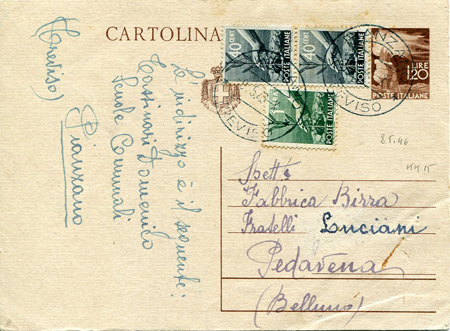 CARTOLINA
40 CENT
POSTE ITALIANE
40 CENT
POSTE ITALIANE
LIRE
1,20
POSTE ITALIANE
POSTE ITALIANE
TREVISO
TREVISO
8 5. 46
L'indirizzo è il seguente:
Domenico
Scuole Comunali
Pianzano
(Treviso)
Spett.
Fabbrica Birra
Fratelli Luciani
Pedavena
(Belluno)